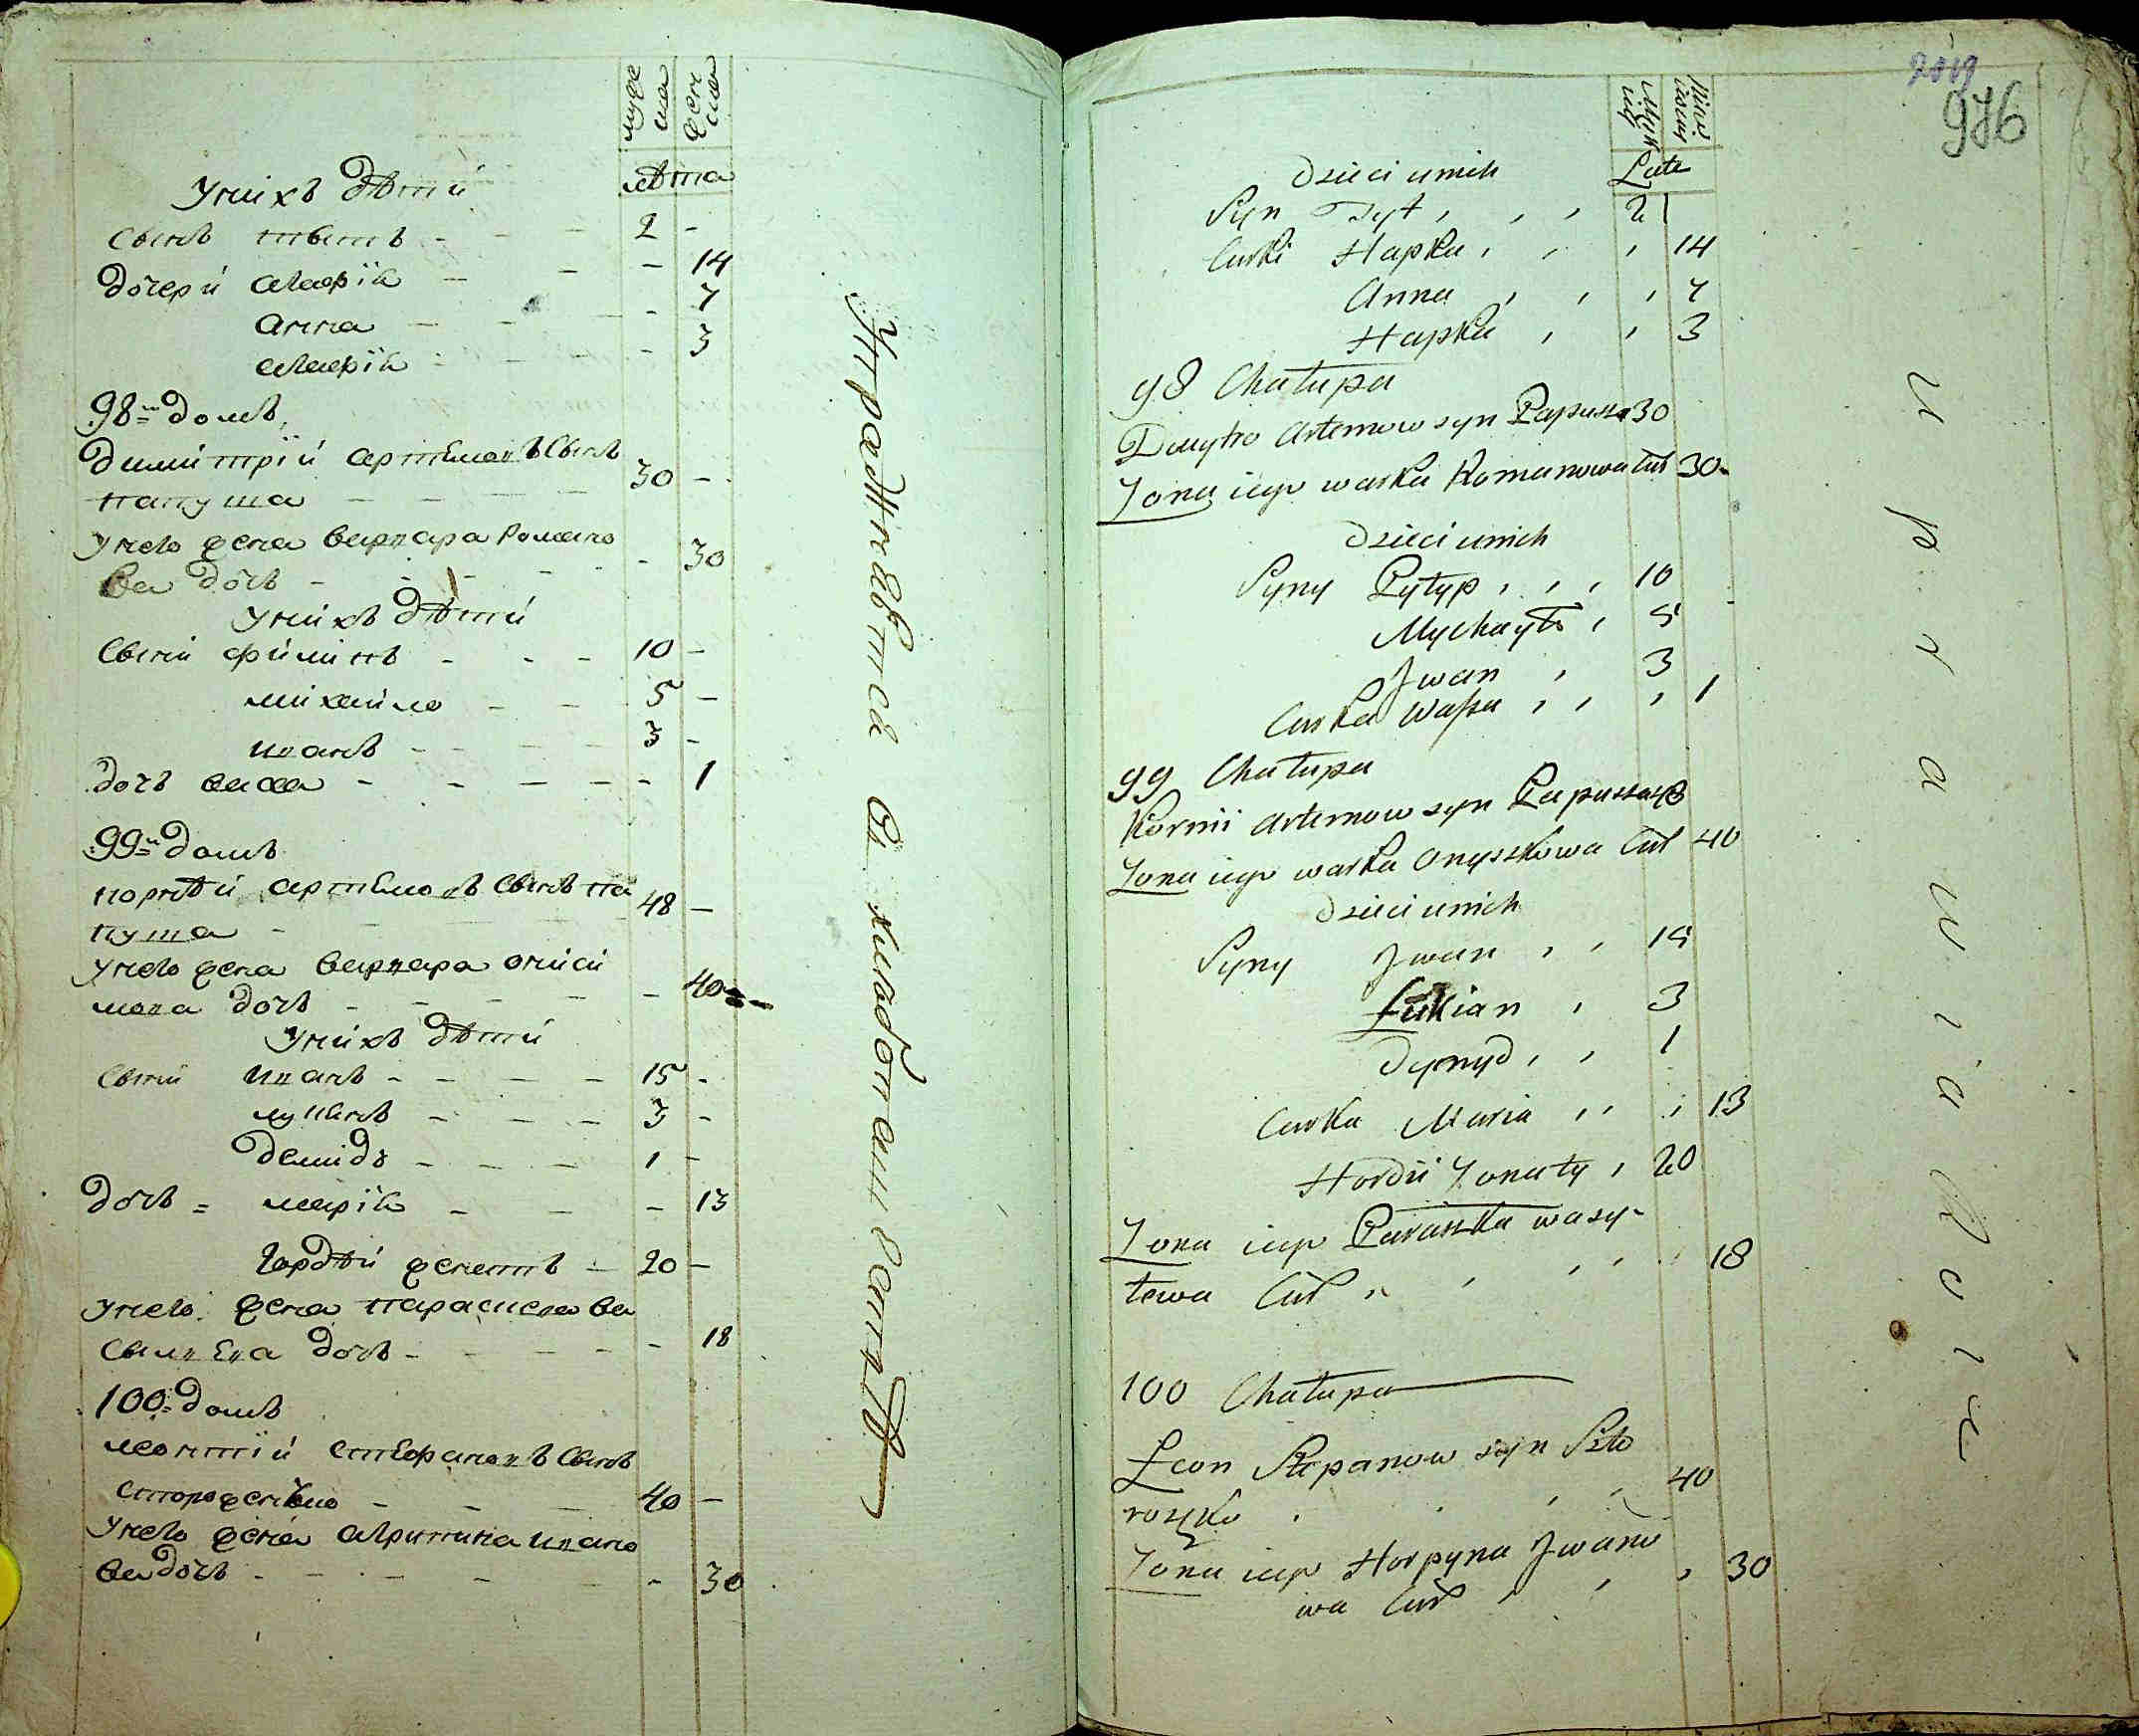 муже
ска
женс
ска
лѣта
У нихъ дѣти
Сынъ титъ - - - 2 -
дочери Агафія - - - 14
Анна - - - 7
Агафія - - - 3
98-й домъ
димитрій артемовъ Сынъ
папуша - - - 30 -
У него жена варвара Романо
ва дочь - - - - 30
У нихъ дѣти
Сыни филипъ - - - 10 -
михайло - - 5 -
иванъ - - - 3 -
дочь васса - - - - - 1
99-й домъ
корнѣй артемовъ Сынъ па
пуша - 48 -
У него жена варвара ониси
мова дочь - - - - 40
У нихъ дѣти
Сыни иванъ - - - - 15 -
лукянъ - - - 3 -
демидъ - - - 1 -
дочь = марія - - - 13
гордѣй женатъ - 20 -
У него жена параскева ва
сильева дочь - - - - - 18
100-й домъ
леонтій стефановъ Сынъ
сторженко - - - 40 -
У него жена Агрипина ивано
ва дочь - - - - - 30
2019
976
Męsk
iey
Żens
kiey
Lata
Dzieci u nich
Syn Tyt , , , 2
Curki Hapka , , , 14
Anna , , , 7
Hapka , , 3
98 Chałupa
Dmytro Artemow syn Papusza 30
Żona iego warka Romanowa Cur 30
Dzieci u nich
Syny Pyłyp , , , 10
Mychayło , 5
Jwan , 3
Curka Wassa , , , 1
99 Chałupa
Kornii Artemow syn Papusza 48
Żona iego warka Onyszkowa Cur 40
Dzieci u nich
Syny Jwan , , 15
Łukian , 3
Dymyd , , 1
Curka Maria , , , 13
Hordii Żonaty , 20
Żona iego Paraszka wasy-
lewa Cur , , , , 18
100 Chałupa
Leon Stepanow syn Sto
rozko , , , , 40
Żona iego Horpyna Jwano
wa Cur , , , 30